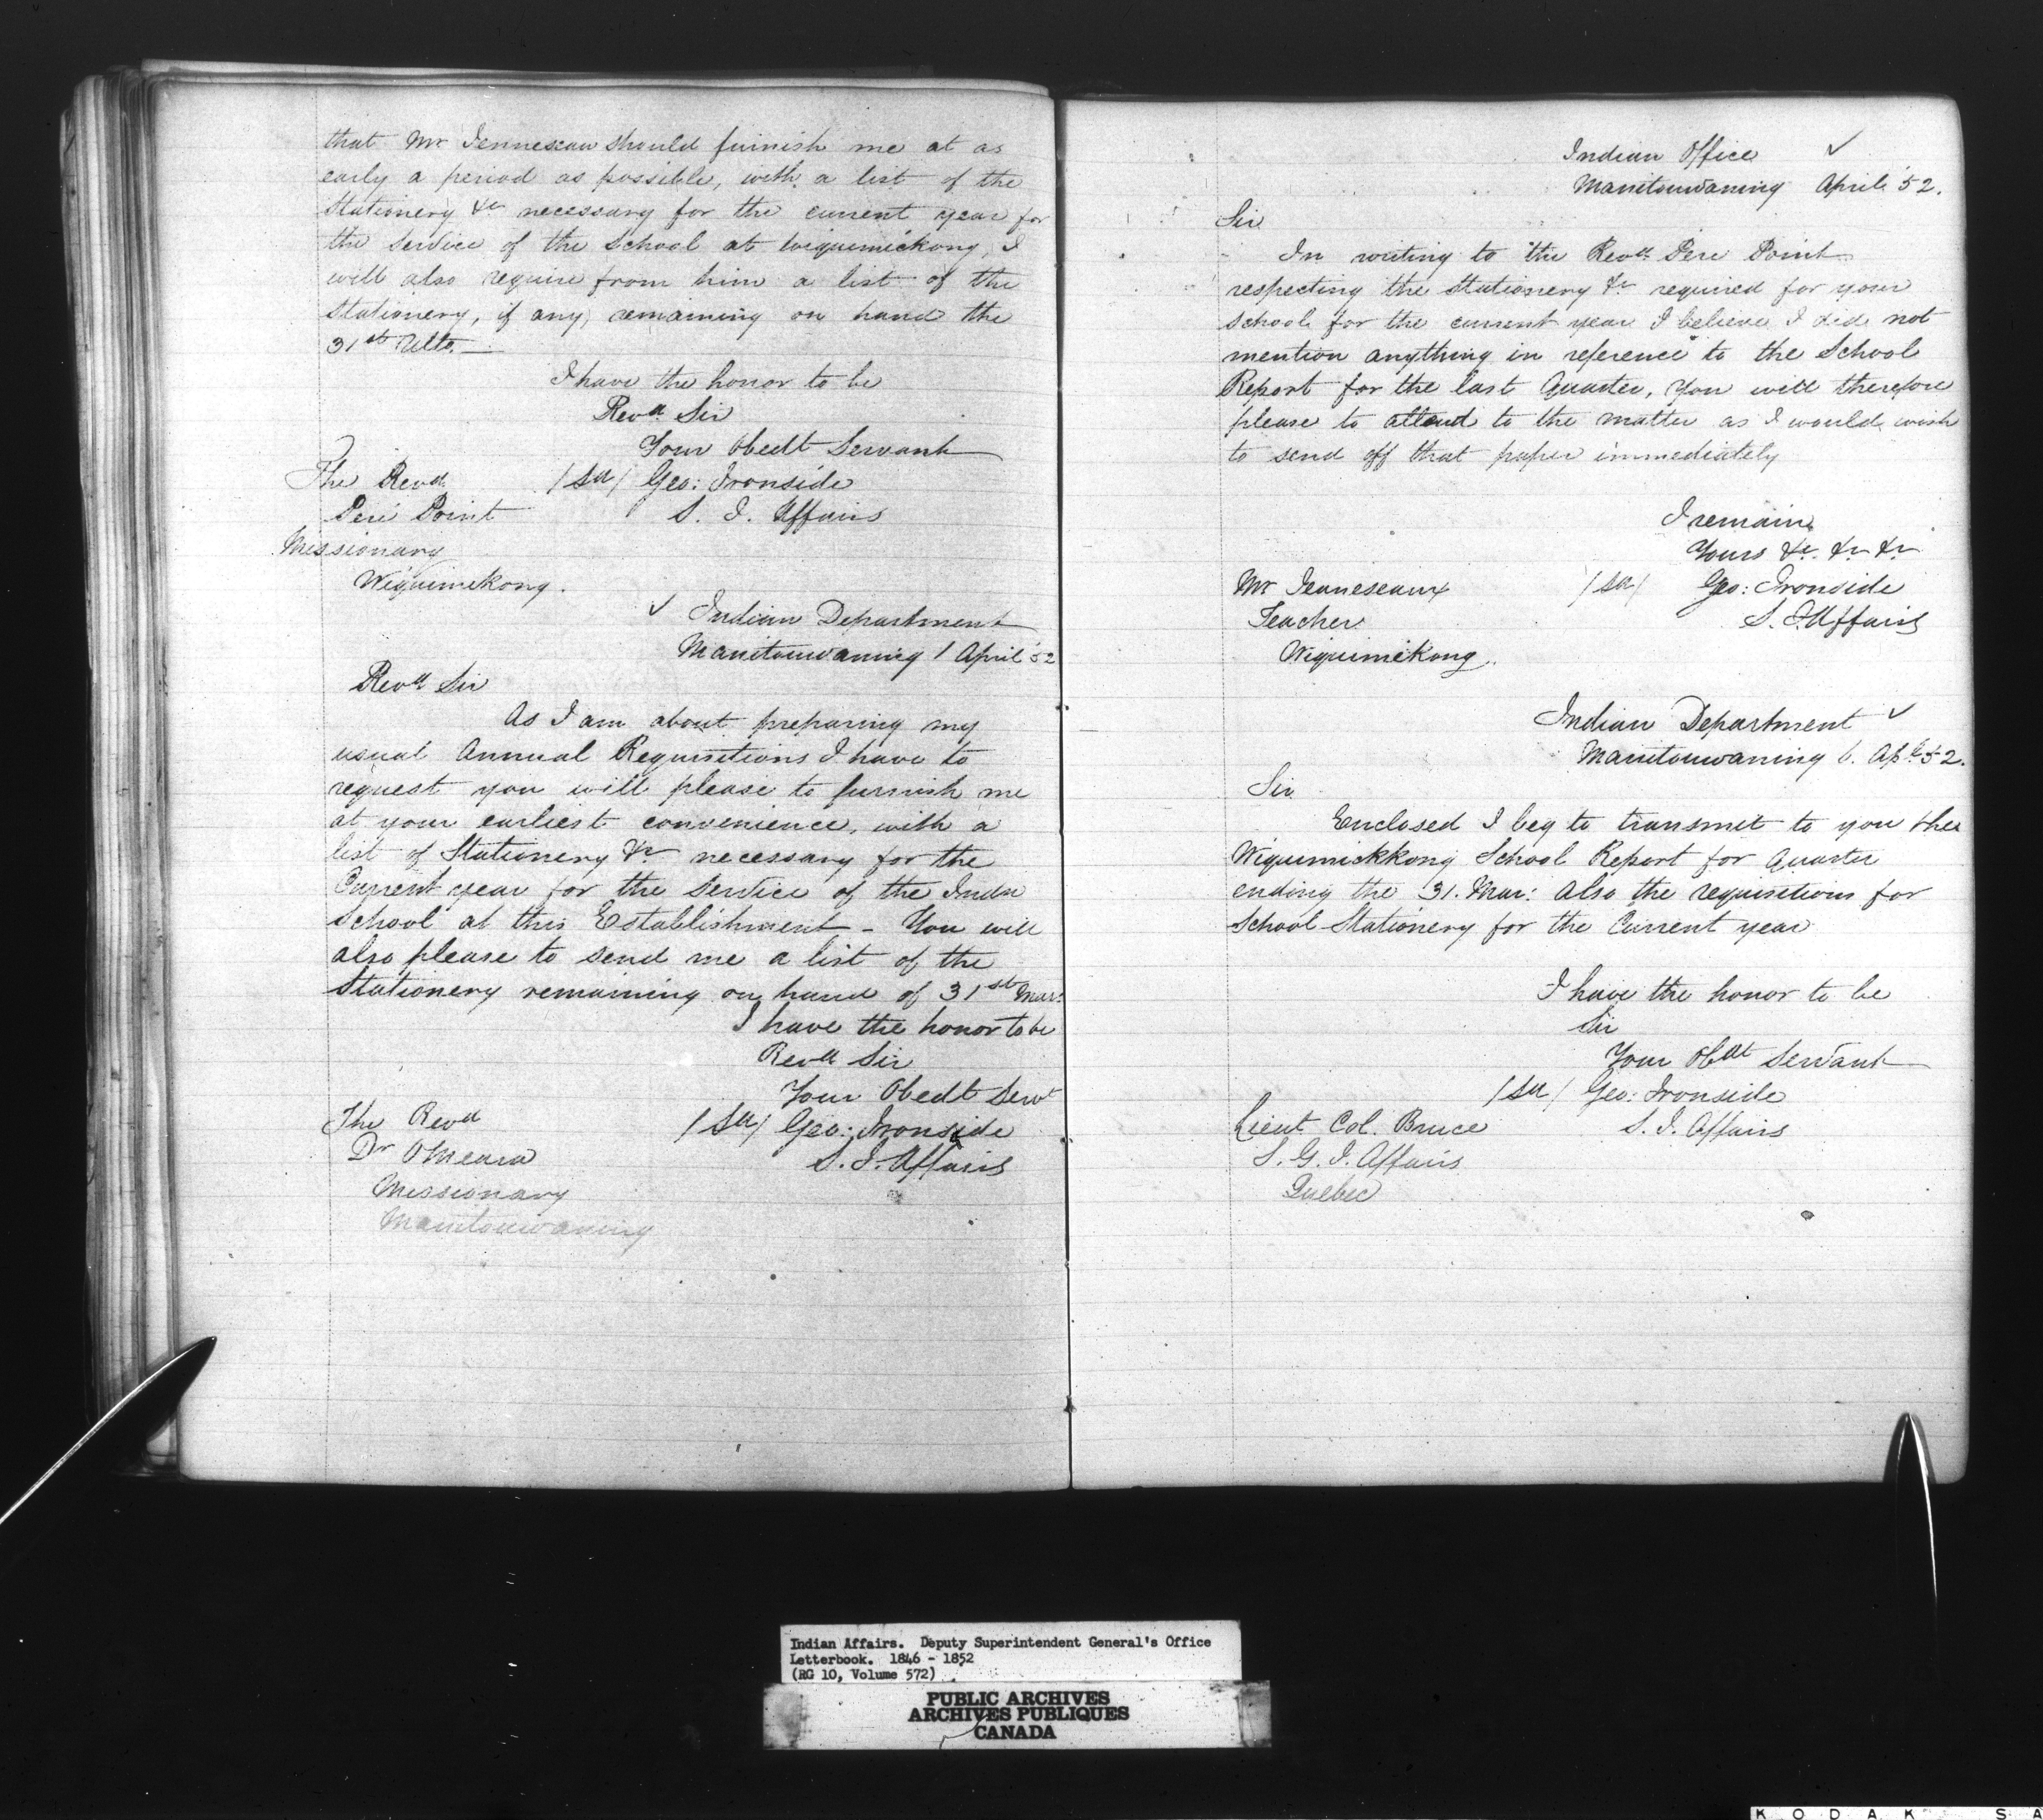 that Mr Jenneseau should furnish me at as
early a period as possible, with a list of the
Stationery &c necessary for the current year for
the Service of the School at Wiquemickong, I
will also require from him a list of the
Stationery, if any, remaining on hand the
31st Ulto. —
I have the honor to be
Revd. Sir
Your Obedt Servant
The Revd. /Sd/ Geo: Ironside
Peré Point S. I. Affairs
Missionary
Wequimekong.
✓ Indian Department
Manitouwaning 1 April 52
Revd Sir
As I am about preparing my
usual Annual Requisitions I have to
request you will please to furnish me
at your earliest convenience, with a
list of Stationery &c necessary for the
Current year for the Service of the Indn
School at this Establishment - You will
also please to send me a list of the
Stationery remaining on hand of 31st Mar:
I have the honor to be
Revd Sir
Your Obedt Servt
The Revd /Sd/ Geo: Ironside
Dr OMeara S. I. Affairs
Missionary
Manitouwaning
Indian Office ✓
Manitouwaning April 52.
Sir
In writing to the Revd. Pere Point
respecting the Stationery &c required for your
School for the current year I believe I did not
mention anything in reference to the School
Report for the last Quarter, You will therefore
please to attend to the matter as I would wish
to send off that paper immediately
I remain
Yours &c. &c &c
Mr Jeaneseaux /Sd/ Geo: Ironside
Teacher S. I. Affairs
Wiquimekong.
Indian Department ✓
Manitouwaning 6. Apl. 52.
Sir
Enclosed I beg to transmit to you the
Wiquimickkong School Report for Quarter
ending the 31. Mar: also the requisitions for
School Stationery for the Current year
I have the honor to be
Sir
Your Obdt Servant
/Sd/ Geo: Ironside
Lieut Col. Bruce S. I. Affairs
S. G. I. Affairs
Quebec
Indian Affairs. Deputy Superintendent General's Office
Letterbook. 1846 - 1852
(RG 10, Volume 572)
PUBLIC ARCHIVES
ARCHIVES PUBLIQUES
CANADA
KODAK SA